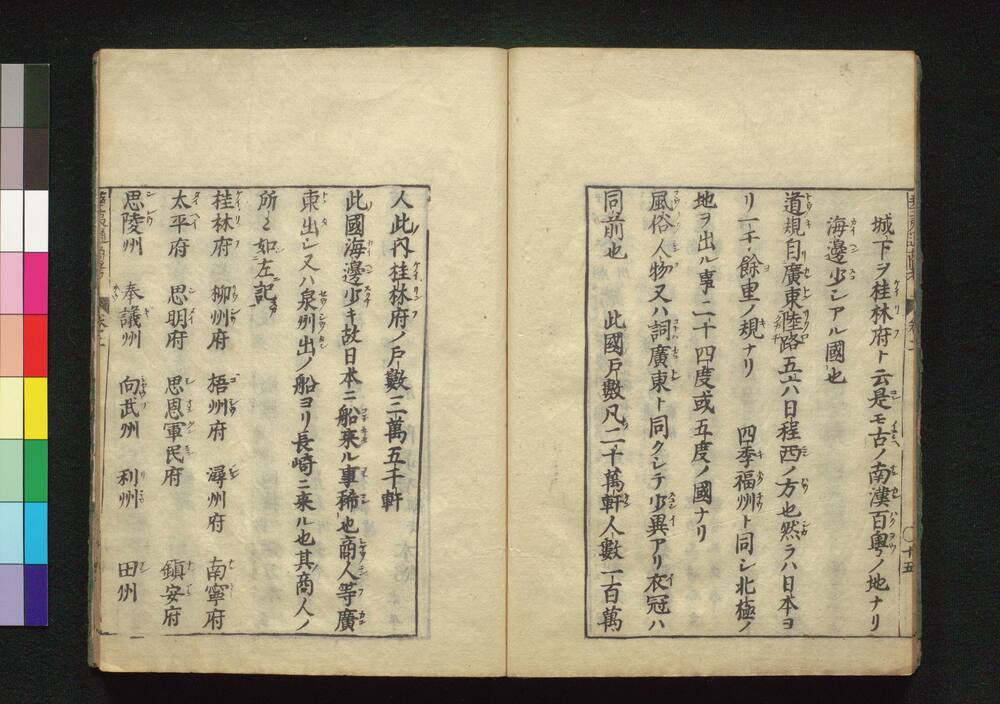 城下ヲ桂林府ト云是モ古ノ南漢百粤ノ地ナリ
海邊少シアル國也
道規自廣東陸路五六日程西ノ方也然ラハ日本ヨ
リ一千餘里ノ規ナリ　四季福州ト同シ北極ノ
地ヲ出ル事二十四度或五度ノ國ナリ
風俗人物又ハ詞廣東ト同クシテ少異アリ衣冠ハ
同前也　此國戸數凡二十萬軒人數一百萬
〇十五
人此内桂林府ノ戸數三萬五千軒
此國海邊少キ故日本ニ船来ル事稀也商人等廣
東出シ又ハ泉州出ノ船ヨリ長崎ニ来ル也其商人ノ
所々如左記
桂林府　柳州府　梧州府　潯州府　南寧府
太平府　思明府　思恩軍民府　鎮安府
思陵州　奉議州　向武州　利州　田州
華夷通商考　卷之二